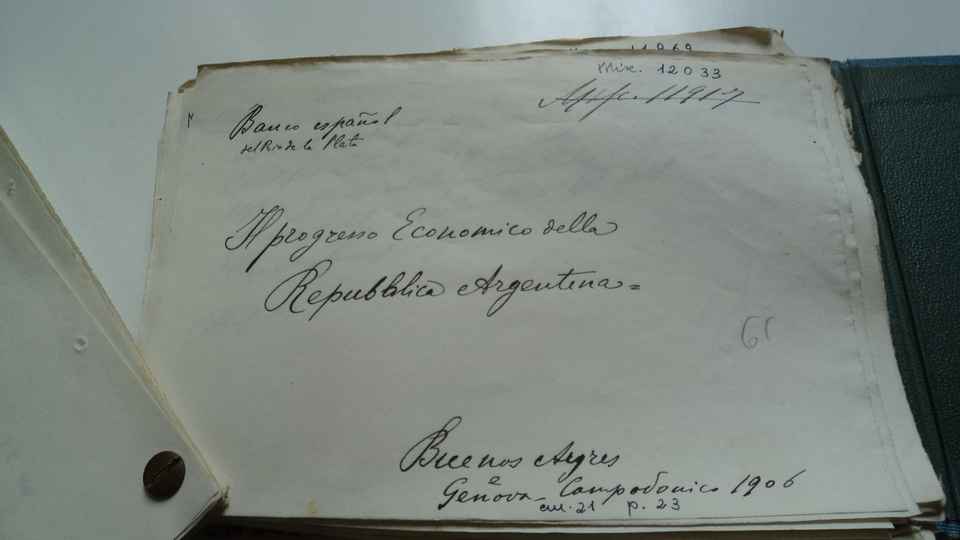 Mix. 12033
Banco español
del Rio de la Plata
Il progresso Economico della
Repubblica Argentina =
Buenos Ayres
e
Genova - Campodonico 1906
cm. 21 p. 23